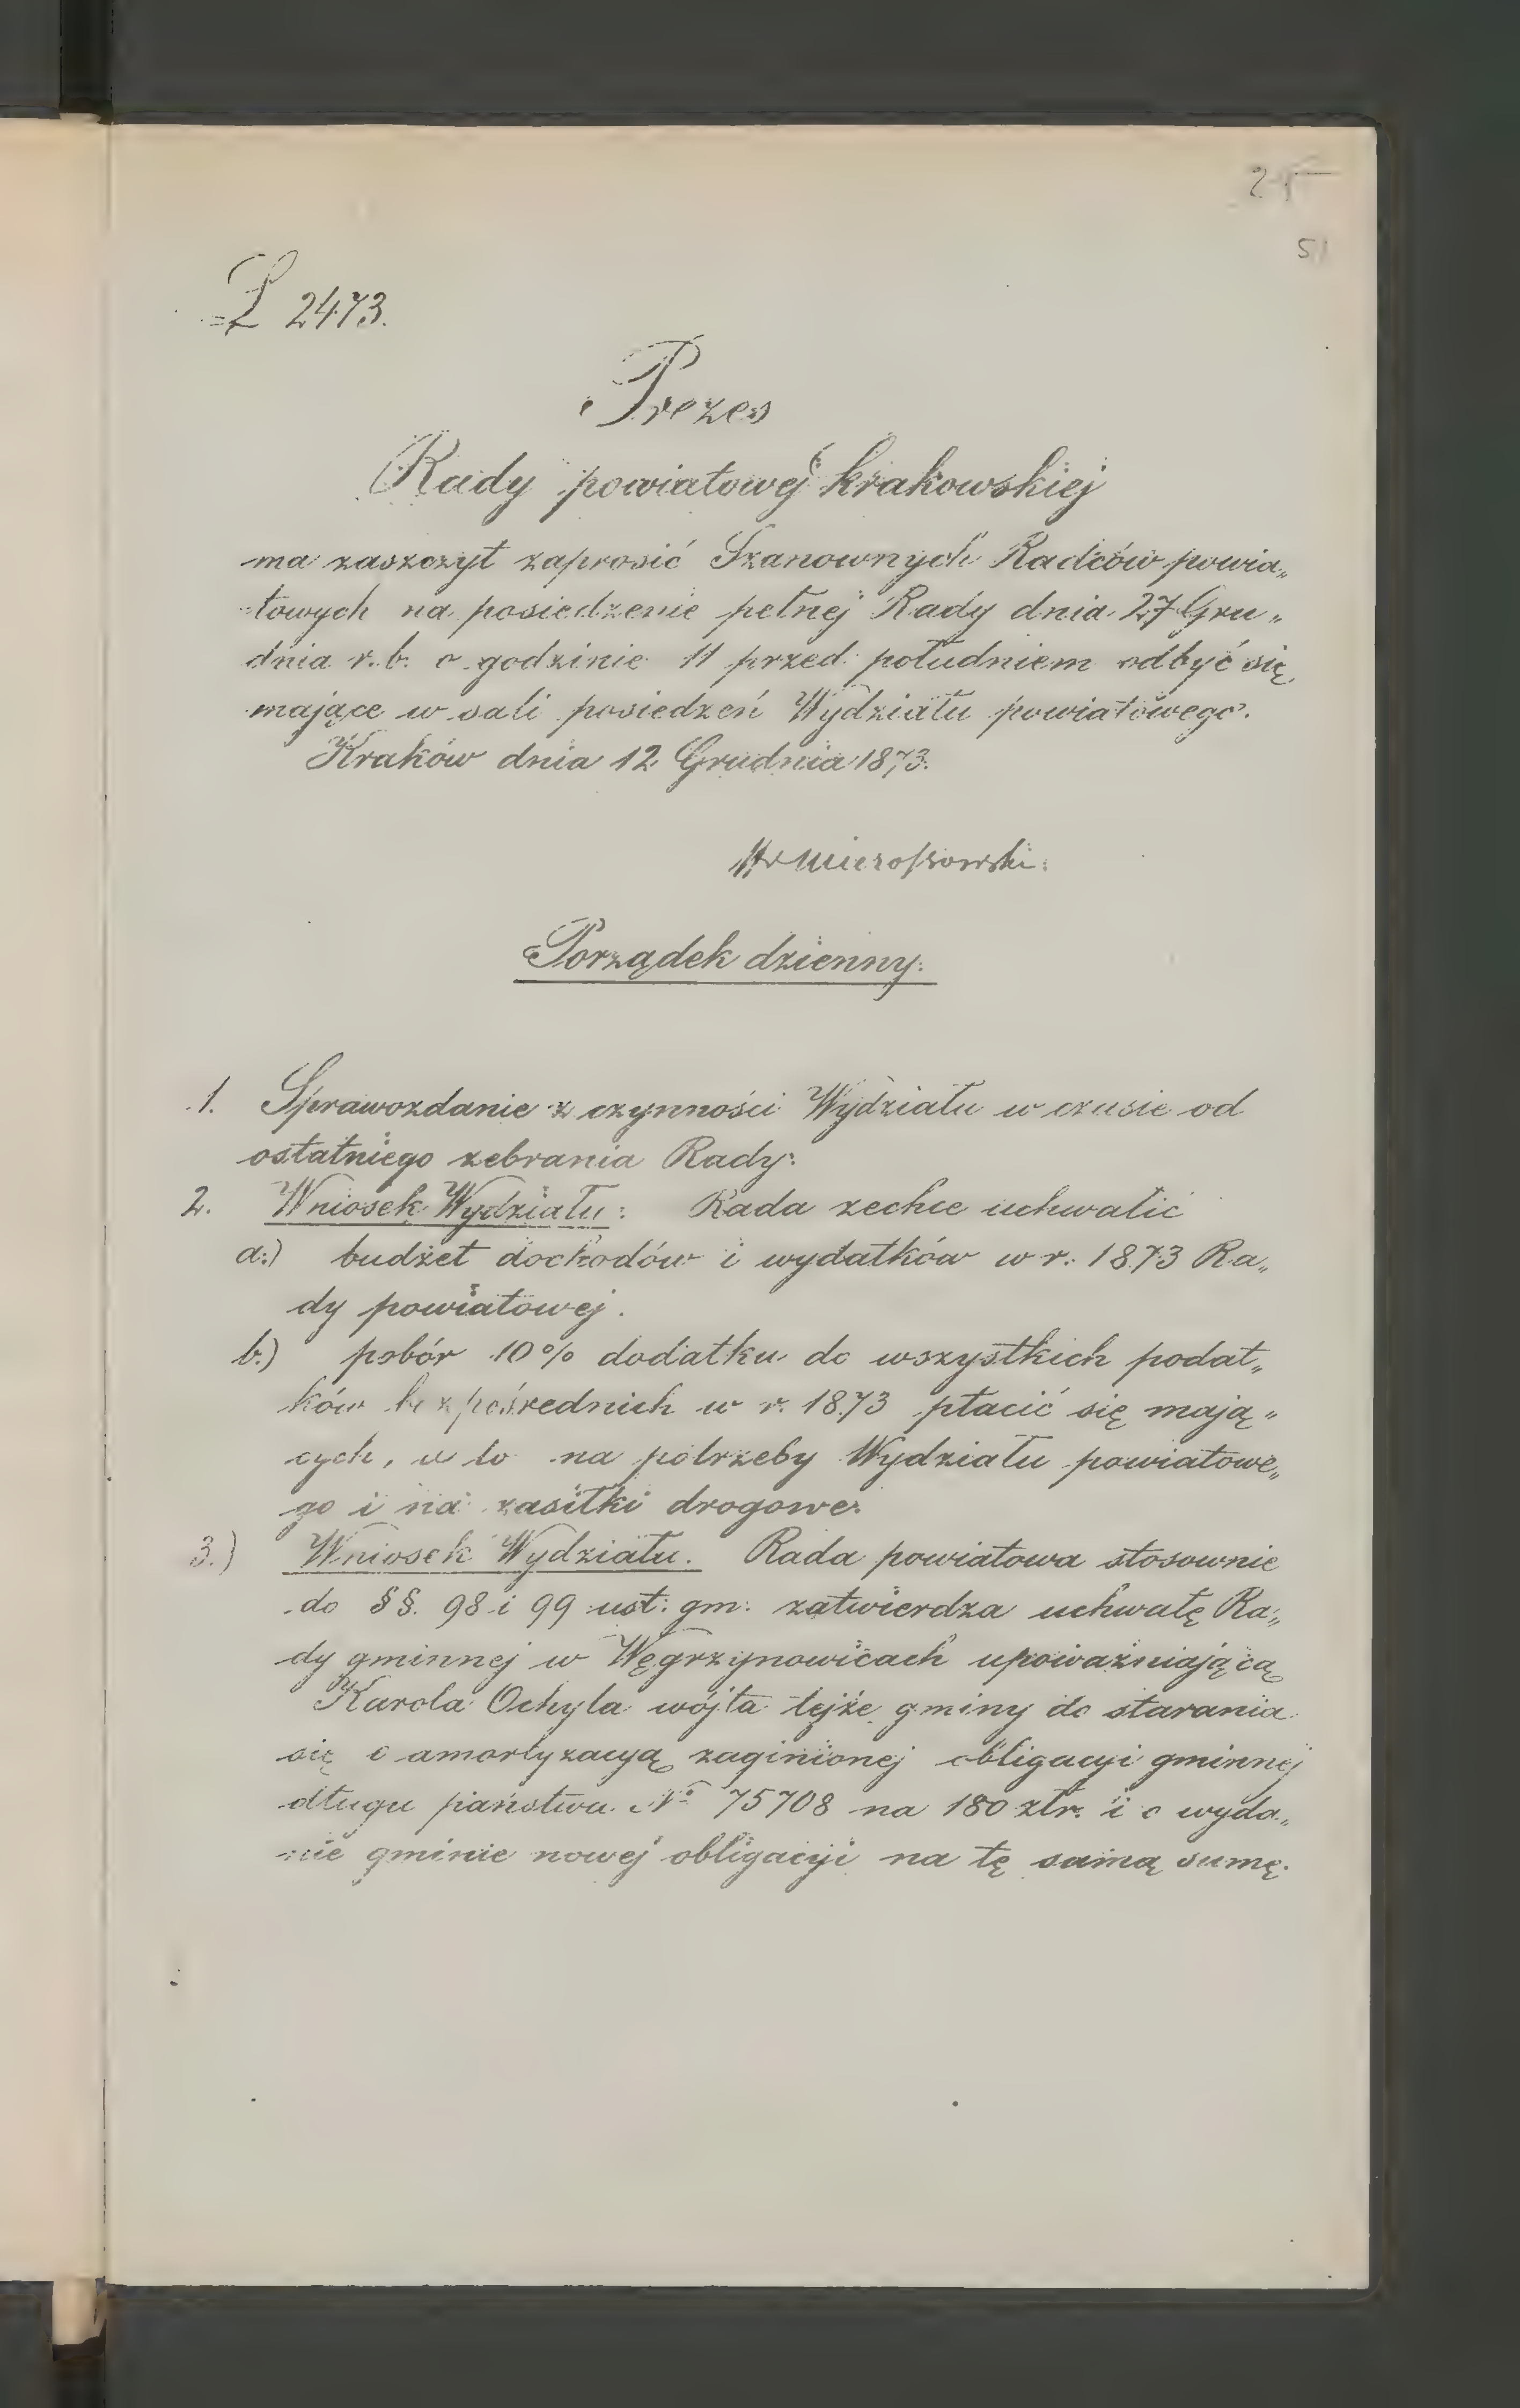 25
51
L 2473.
Prezes
Rady powiatowej krakowskiej
ma zaszczyt zaprosić Szanownych Radców powia„
towych na posiedzenie pełnej Rady dnia 27 Gru„
dnia r. b. o godzinie 11 przed południem odbyć się
mające w sali posiedzeń Wydziału powiatowego.
Kraków dnia 12 Grudnia 1873.
Mieroszowski.
Porządek dzienny:
1. Sprawozdanie z czynności Wydziału w czasie od
ostatniego zebrania Rady.
2. Wniosek Wydziału: Rada zechce uchwalić
a:) budżet dochodów i wydatków w r. 1873 Ra„
dy powiatowej.
b.) pobór 10% dodatku do wszystkich podat„
ków bezpośrednich w r. 1873 płacić się mają„
cych, a to na potrzeby Wydziału powiatowe„
go i na zasiłki drogowe.
3.) Wniosek Wydziału. Rada powiatowa stosownie
do §§. 98 i 99 ust. gm. zatwierdza uchwałę Ra„
dy gminnej w Węgrzynowicach upoważniającą
Karola Ochyla wójta tejże gminy do starania
się o amortyzacyą zaginionej obligacyi gminnej
długu państwa No 75708 na 180 złr. i o wyda„
nie gminie nowej obligacyi na tę samą sumę.